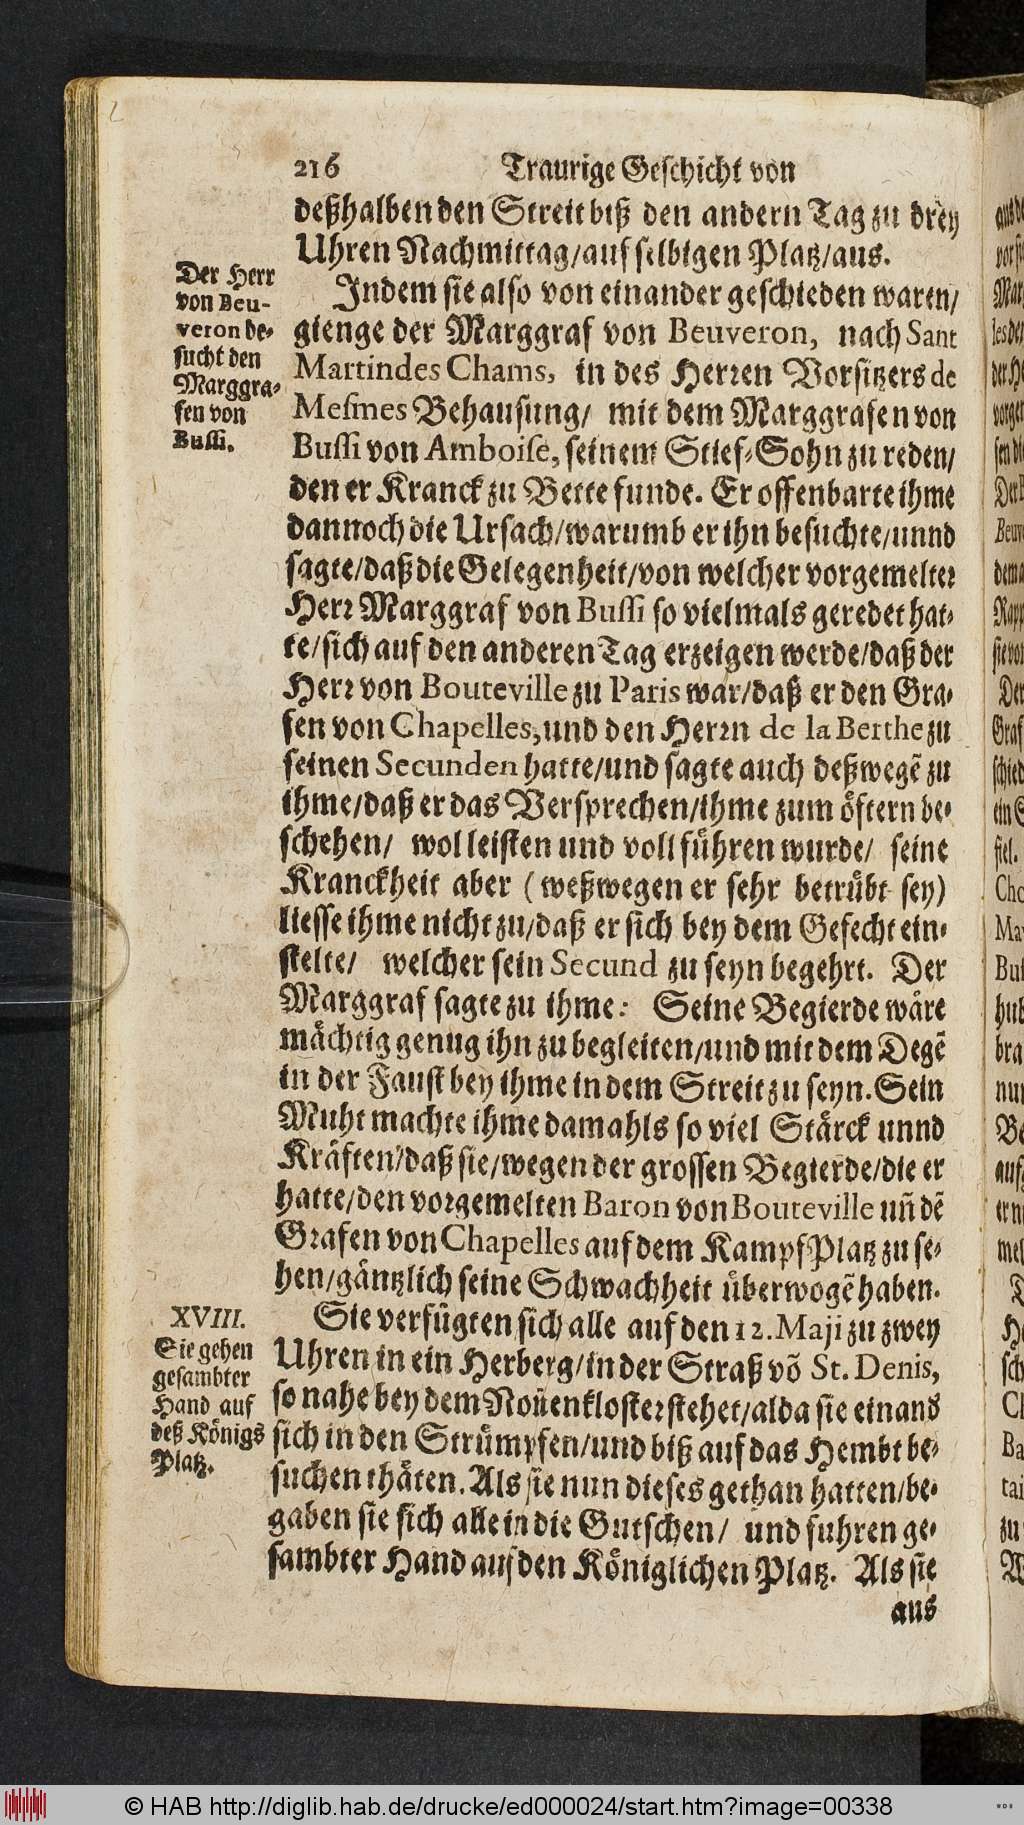 216 Traurige Geschicht von
deßhalben den Streit biß den andern Tag zu drey
Uhren Nachmittag/auf selbigen Platz/aus.
Der Herr
von Beu-
veron be-
sucht den
Marggra-
fen von
Bussi.
Indem sie also von einander geschieden waren/
gienge der Marggraf von Beuveron, nach Sant
Martin des Chams, in des Herren Vorsitzers de
Mesmes Behausung/ mit dem Marggrafen von
Bussi von Amboise, seinem Stief-Sohn zu reden/
den er Kranck zu Bette funde. Er offenbarte ihme
dannoch die Ursach/warumb er ihn besuchte/unnd
sagte/daß die Gelegenheit/von welcher vorgemelter
Herr Marggraf von Bussi so vielmals geredet hat-
te/sich auf den anderen Tag erzeigen werde/daß der
Herr von Bouteville zu Paris war/daß er den Gra-
fen von Chapelles, und den Herrn de la Berthe zu
seinen Secunden hatte/und sagte auch deßwegẽ zu
ihme/daß er das Versprechen/ihme zum öftern be-
schehen/ wol leisten und vollführen wurde/ seine
Kranckheit aber (weßwegen er sehr betrübt sey)
liesse ihme nicht zu/daß er sich bey dem Gefecht ein-
stelte/ welcher sein Secund zu seyn begehrt. Der
Marggraf sagte zu ihme: Seine Begierde wäre
mächtig genug ihn zu begleiten/und mit dem Degẽ
in der Faust bey ihme in dem Streit zu seyn. Sein
Muht machte ihme damahls so viel Stärck unnd
Kräften/daß sie/wegen der grossen Begierde/die er
hatte/den vorgemelten Baron von Bouteville uñ dẽ
Grafen von Chapelles auf dem KampfPlatz zu se-
hen/gäntzlich seine Schwachheit überwogẽ haben.
XVIII.
Sie gehen
gesambter
Hand auf
deß Königs
Platz.
Sie verfügten sich alle auf den 12. Maji zu zwey
Uhren in ein Herberg/in der Straß võ St. Denis,
so nahe bey dem Noñenkloster stehet/alda sie einand
sich in den Strümpfen/und biß auf das Hembt be-
suchen thäten. Als sie nun dieses gethan hatten/be-
gaben sie sich alle in die Gutschen/ und fuhren ge-
sambter Hand auf den Königlichen Platz. Als sie
aus
© HAB http://diglib.hab.de/drucke/ed000024/start.htm?image=00338